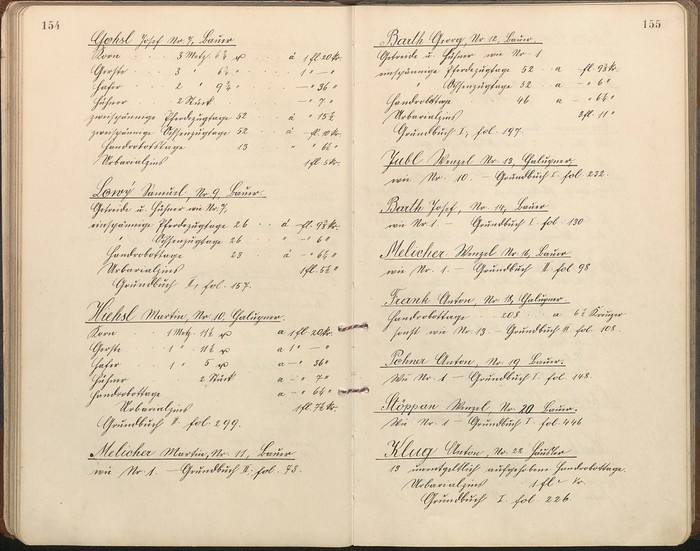 154
Gehsl Josef Nr. 7, Bauer
Korn 3 Metz. 6½ á 1 fl 20 kr.
Gerste 3 " 6¾ " 1 " — "
Hafer 2 " 9¾ " — " 36 "
Hühner 2 Stück — " 7 "
zweispännige Pferdezugtage 52 á " 15½
zweispännige Ochsenzugtage 52 á — fl. 10 kr.
Handrobottage 13 " " 6½ "
Urbarialzins 1 fl 5 kr.
Lowý Samuel, Nr. 9 Bauer.
Getreide u. Hühner wie Nr. 7,
einspännige Pferdezugtage 26 á — fl. 9¾ kr.
" Ochsenzugtage 26 " — " 6 "
Handrobottage 23 á — " 6½ "
Urbarialzins 1 fl. 5½ "
Grundbuch II, fol. 157.
Hiehsl Martin, Nr. 10, Chalupner.
Korn 1 Metz. 11½ a 1 fl 20 kr.
Gerste 1 " 11½ a 1 " — "
Hafer 1 " 5 a — " 36 "
Hühner 2 Stück a — " 7 "
Handrobottage a — " 6½ "
Urbarialzins 1 fl. 7½ kr.
Grundbuch II. fol. 299.
Melicher Martin, Nr. 11, Bauer
wie Nr. 1. — Grundbuch II. fol. 73.
155
Barth Georg, Nr. 12, Bauer.
Getreide u. Hühner wie Nr. 1
einspännige Pferdezugtage 52 a fl. 9¾ kr.
" Ochsenzugtage 52 a — " 6 "
Handrobottage 46 a — " 6½ "
Urbarialzins 3 fl. 11 "
Grundbuch I, fol. 197.
Jubl Wenzel Nr. 13, Chalupner
wie Nr. 10. — Grundbuch I. fol. 232.
Barth Josef, Nr. 14, Bauer
wie Nr. 1. — Grundbuch I. fol. 130
Melicher Wenzel Nr. 16, Bauer
wie Nr. 1. — Grundbuch II fol 98
Frank Anton Nr. 18, Chalupner
Handrobottage 208 a 6½ Kreuzer
sonst wie Nr. 13. — Grundbuch II. fol. 108.
Pohner Anton, Nr. 19 Bauer.
Wie Nr. 1 — Grundbuch I. fol. 148.
Stöppan Wenzel, Nr. 20 Bauer.
Wie Nr. 1 — Grundbuch I. fol 446
Klug Anton, Nr. 22 Häusler
13 unentgeltlich aufgehobene Handrobottage.
Urbarialzins 1 fl — kr.
Grundbuch I. fol 226